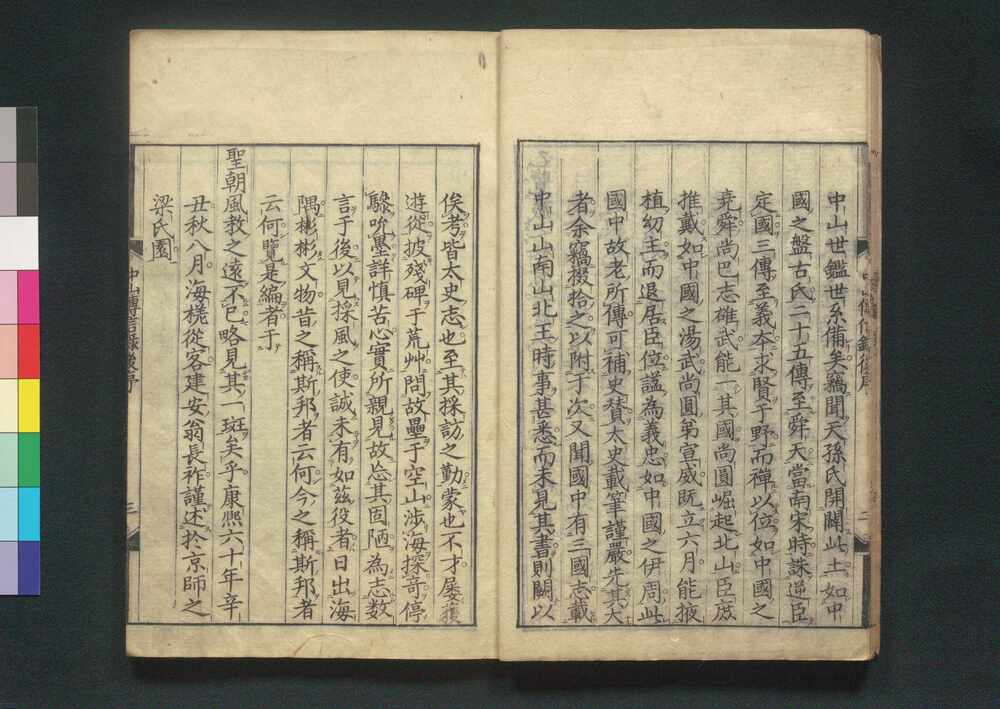 中山世鑑世系備矣竊聞天孫氏開闢此土如中
國之盤古氏二十五傳至舜天當南宋時誅逆臣
定國三傳至義本求賢于野而禪以位如中國之
堯舜尚巴志雄武能一其國尚圓崛起北山臣庶
推戴如中國之湯武尚圓弟宣威既立六月能掖
植幼主而退居臣位謚為義忠如中國之伊周此
國中故老所傳可補史贊太史載筆謹嚴先其大
者余竊掇拾之以附于次又聞國中有三國志載
中山山南山北王時事甚悉而未見其書則闕以
俟考皆太史志也至其採訪之勤蒙也不才屡獲
遊從披殘碑于荒艸問故壘于空山涉海探奇停
驂吮墨詳慎苦心實所親見故忘其固陋為志数
言于後以見採風之使誠未有如茲役者日出海
隅彬彬文物昔之稱斯邦者云何今之稱斯邦者
云何覽是編者于
聖朝風教之遠不已略見其一斑矣乎康熙六十年辛
丑秋八月海槎從客建安翁長祚謹述於京師之
梁氏園
中山傳信録後序
三